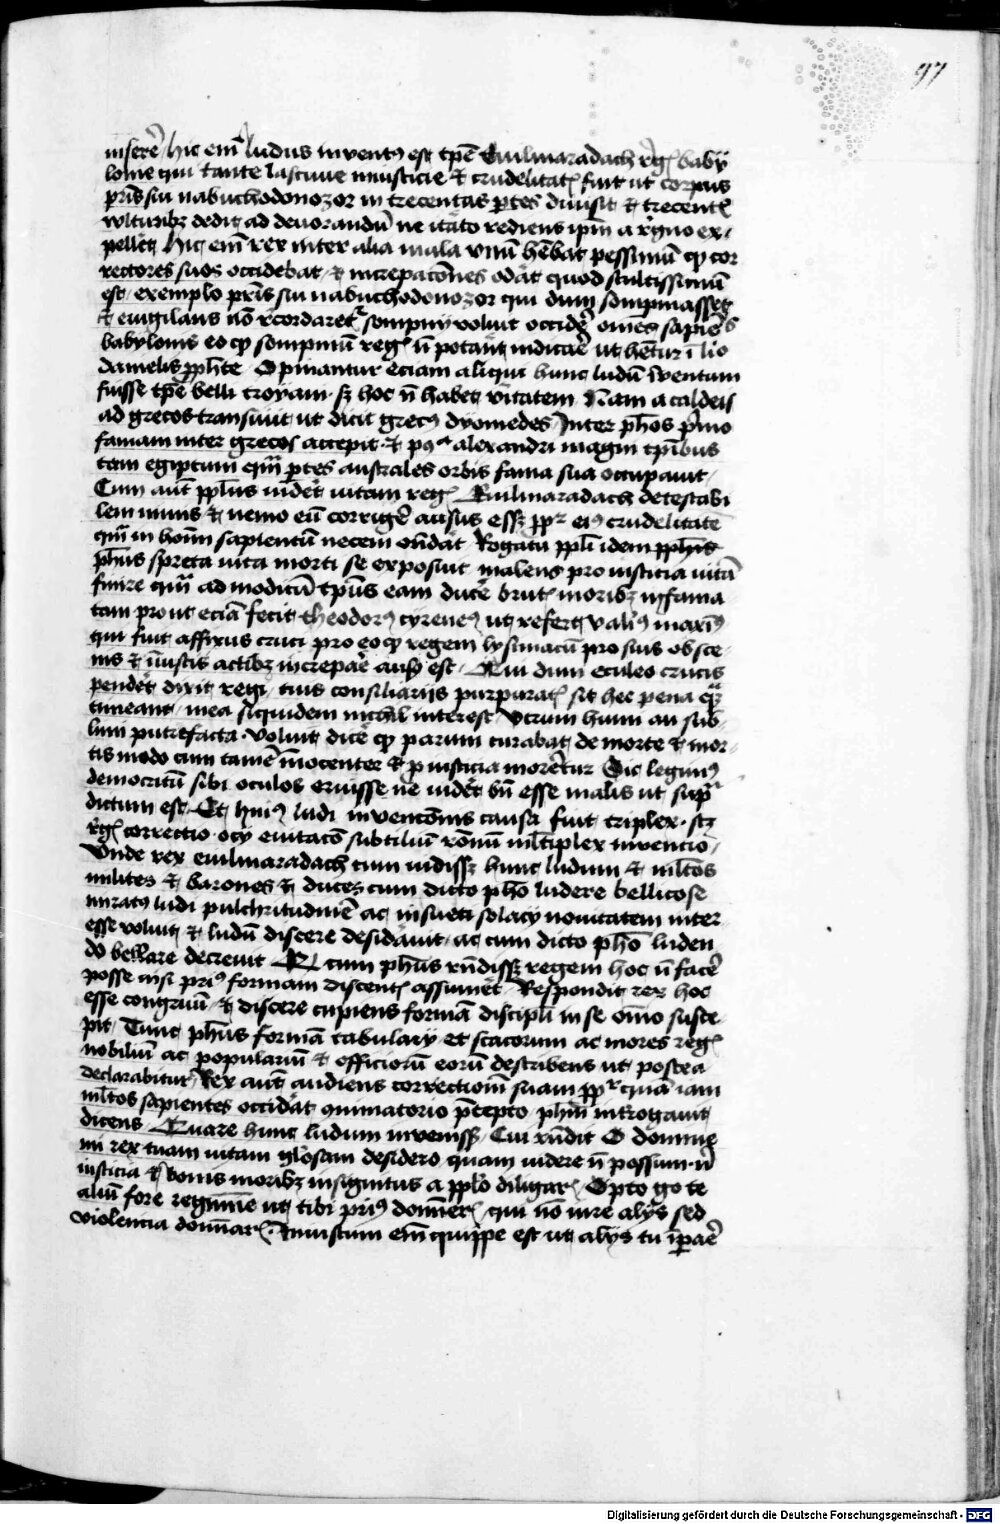 97
inserē hic em̄ ludus inventꝰ est tp̄e Evilmaradach rēgꝭ baby
lonie qui tante lascivie iniusticie et crudelitatꝭ fuit ut corpus
pr̄is sui nabuchodonozor in trecentas ꝑtes divisit et trecentꝭ
wlturibꝫ dedit ad devorandū ne itāto rediens ip̄m a rēgno ex⸗
pellēt Hic em̄ rex inter alia mala unū hēbat pessimū qꝫ cor
rectores suos occidebat et increpacōnes odāt quod stultissimū
est exemplo pr̄is sui nabuchodonozor qui dum sompniasset
et evigilans nō rēcordaretꝭ sompny voluit occidē omēs sapiēs
babylonis eo qꝫ sompniū regꝭ n̄ potāt indicaē ut hētur ī lio
danielis ꝓph̄te Opinantur eciam aliqui hunc ludū īventum
fuisse tp̄e belli troyani sꝫ hoc n̄ habet vītatem Nam a caldeis
ad grecos transivit ut dicit grecꝰ dyomedes Inter ph̄os pīmo
famam inter grecos accepit et pꝰ alexandri magni tp̄ibus
tam egiptum qm̄ ꝑtes australes orbis fama sua occupavit
Cum aūt pph̄us vidēt vitam regꝭ Evilmaradach detestabi
lem nimis et nemo eū corrigē ausus essꝫ ꝓpꝭ eiꝰ crudelitatē
qm̄ in hoīm sapientū necem ondāt Rogatu ppl̄i idem pph̄us
ph̄us spreta vita morti se exposuit malens pro iusticia vitā
finire qm̄ ad modicū tp̄us eam ducē brutꝭ moribꝫ infama
tam prout eciā fecit theodorꝰ cyreneꝰ ut refert valꝰ maxīꝰ
qui fuit affixus cruci pro eo qꝫ regem lysimacū pro suis obsce⸗
nis et iniustis actibꝫ increpaē ausꝰ est Qui dum eculeo crucis
pendēt dixit regi tuis consiliariis purpuratꝭ sit hec pena qꝫ
timeant mea siquidem nichil interest Utrum humi an sub⸗
limi putrefacta voluit dicē qꝫ parum curabat de morte et mor⸗
tis modo cum tamē īnocenter et ꝓ iusticia morētur Sic legimꝰ
democritū sibi oculos eruisse ne vidēt bn̄ esse malis ut supꝭ
dictum est Et huiꝰ ludi invencōnis causa fuit triplex scꝫ
rēgꝭ correctio ocy evitacō subtiliū rōnū ml̄tiplex invencio
Unde rex evilmaradach cum vidissꝫ hunc ludum et ml̄tos
milites et barones et duces cum dicto ph̄o ludere bellicose
miratꝰ ludi pulchritudinē ac insueti solacy novitatem inter
esse voluit et ludū discere desidāvit ac cum dicto ph̄o luden
do bellare decrevit Et cum ph̄us rn̄dissꝫ regem hoc n̄ facē
posse nisi priꝰ formam discentꝭ assumēt Respondit rex hoc
esse congruū et discere cupiens formā discipl̄i in se om̄io susce⸗
pit Tunc ph̄us formā tabulary et scacorum ac mores regꝭ
nobiliū ac populariū et officiorū eorū describens ut postea
declarabitur Rex aūt audiens correctionē suam ꝓpꝭ quā iam
ml̄tos sapientes occidāt cminatorio p̄cepto ph̄m int̄rogavit
dicens Quare hunc ludum invenissꝫ Cui rn̄dit O domine
mi rex tuam vitam gl̄osam desidero quam videre n̄ possum ni
iusticia et bonis moribꝫ insignitus a ppl̄o diligarꝭ Opto gͦ te
aliū fore regimīe ut tibi priꝰ domīerꝭ qui nō iure alys sed
violencia domīarꝭ Iniustum em̄ quippe est ut alys tu īꝑaē
Digitalisierung gefördert durch die Deutsche Forschungsgemeinschaft - DFG